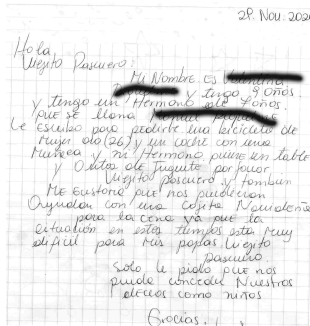 28. Nov. 202
Hola
Viejito Pascuero:
Mi Nombre Es
y tengo 9 años.
y tengo un Hermano de 7 años.
que se llama
Le escribo para pedirle una bicicleta de
Mujer aro (26) y un coche con una
Muñeca y mi Hermano quiere un table
y Ositos de Juguete por favor
Viejito pascuero y tambien
Me Gustaria que nos pudieran
Ayudar con una cajita Navideña
para la cena ya que la
situación en estos tiempos esta Muy
dificil para Mis papas. Viejito
pascuero
Solo le pido que nos
pueda conceder Nuestros
deseos como niños
Gracias.